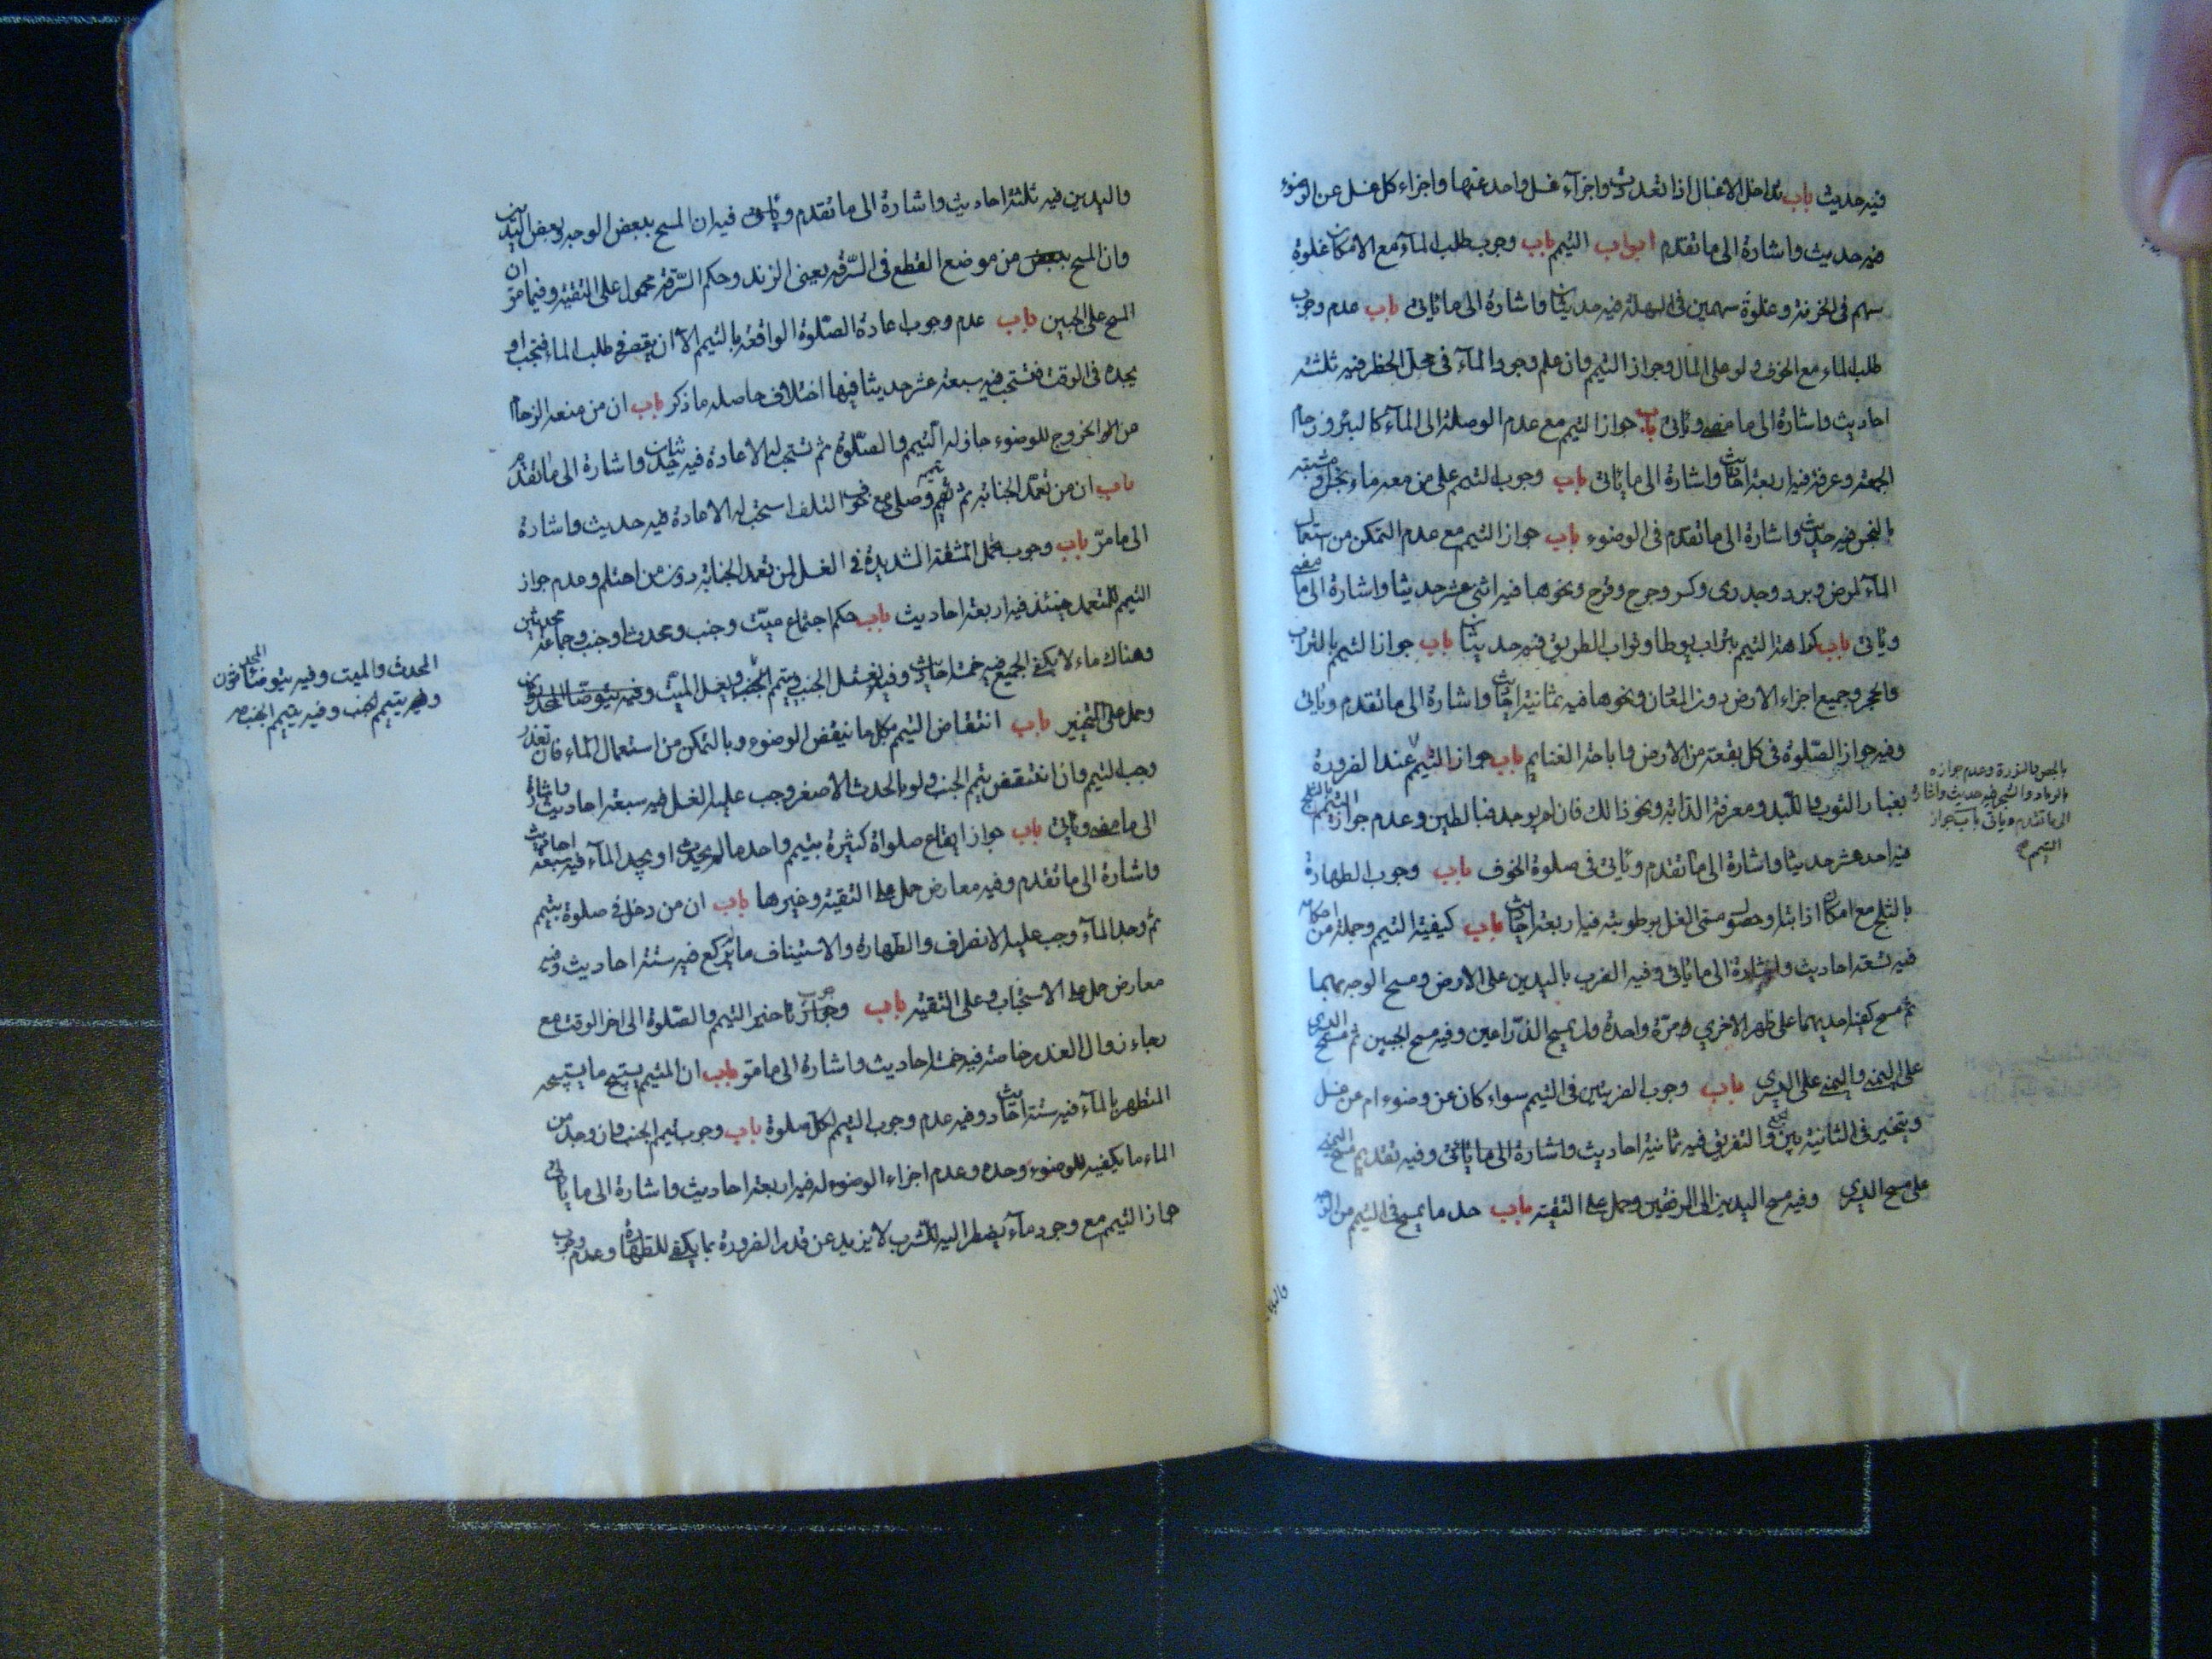 فيه حديث باب تداخل الاغسال اذا تعددت واجزآء غسل واحد عنها واجزاء كل غسل عن الوضوء
فيه حديث واشارة الى ما تقدم ابواب التيمم باب وجوب طلب المآء مع الامكان غلوة
سهم فى الحزنة وغلوة سهمين فى السهلة فيه حديثان واشارة الى ما ياتى باب عدم وجوب
طلب الماء مع الخوف ولو على المال وجواز التيمم وان علم وجود المآء فى محل الخطر فيه ثلثة
احاديث واشارة الى ما مضى وياتى باب جواز التيمم مع عدم الوصلة الى المآء كالبئر وزحام
الجمعة وعرفة فيه اربعة احاديث واشارة الى ما ياتى باب وجوب التيمم على من معه ماء نجس او مشتبه
بالنجس فيه حديث واشارة الى ما تقدم فى الوضوء باب جواز التيمم مع عدم التمكن من استعمال
المآء لمرض وبرد وجدرى وكسر وجرح وقرح ونحوها فيه اثنى عشر حديثا واشارة الى ما مضى
وياتى باب كراهة التيمم بتراب يوطا وتراب الطريق فيه حديثان باب جواز التيمم بالتراب
والحجر وجميع اجزاء الارض دون المعادن ونحوها فيه ثمانية احاديث واشارة الى ما تقدم وياتى
وفيه جواز الصّلوة فى كل بقعة من الارض واباحة الغنايم باب جواز التيمم عند الضرورة
بالجص والنورة وعدم جوازه
بالرماد والشجر فيه حديث واشارة
الى ما تقدم وياتى باب جواز
التيمم صح
بغبار الثوب واللبد ومعرفة الدابة ونحو ذالك فان لم يوجد فبالطين وعدم جواز التيمم بالثلج
فيه احد عشر حديثا واشارة الى ما تقدم وياتى فى صلوة الخوف باب وجوب الطهارة
بالثلج مع امكان اذابته او حصول مسمى الغسل برطوبته فيه اربعة احاديث باب كيفية التيمم وجملة من احكامه
فيه تسعة احاديث واشارة الى ما ياتى وفيه الضرب باليدين على الارض ومسح الوجه بهما
ثم مسح كفيه احديهما على ظهر الاخرى مرّة واحدة ولم يمسح الذّراعين وفيه مسح الجبين ثم مسح اليسرى
على اليمنى واليمنى على اليسرى باب وجوب الضربتين فى التيمم سواء كان عن وضوء ام عن غسل
ويتخير فى الثانية بين الجمع والتفريق فيه ثمانية احاديث واشارة الى ما ياتى وفيه تقديم مسح اليمنى
على مسح اليسرى وفيه مسح اليدين الى المرفقين وحمل على التقية باب حد ما يمسح فى التيمم من الوجه
واليدين فيه ثلثة احاديث واشارة الى ما تقدم وياتى فيه ان المسح ببعض الوجه وبعض اليدين
وان المسح من موضع القطع فى السّرقة يعنى الزند وحكم السّرقة محمول على التقية وفيما مرّ ان
المسح على الجبين باب عدم وجوب اعادة الصّلوة الواقعة بالتيمم الا ان يقصر فى طلب الماء فتجب او
يجده فى الوقت فتستحب فيه سبعة عشر حديثا فيها اختلاف حاصله ما ذكر باب ان من منعه الزحام
من الخروج للوضوء جاز له التيمم والصّلوة ثم تستحب له الاعادة فيه حديثان واشارة الى ما تقدم
باب ان من تعمّد الجنابة ثم تيمم وصلى مع خوف التلف استحب له الاعادة فيه حديث واشارة
الى ما مرّ باب وجوب تحمل المشقة الشديدة فى الغسل لمن تعمد الجنابة دون من احتلم وعدم جواز
التيمم للمتعمد حينئذ فيه اربعة احاديث باب حكم اجتماع ميّت وجنب ومحدث او جنب وجماعة محدثين
وهناك ماء لا يكفى الجميع فيه خمسة احاديث وفيه يغتسل الجنب ويتيمم الجنب ويغسل الميّت وفيه يتوضا المحدثون
المحدث والميت وفيه يتوضا المحدثون
وفيه يتيمم الجنب وفيه يتيمم الجنب صح
وحمل على التخيير باب انتقاض التيمم بكل ما ينقض الوضوء وبالتمكن من استعمال الماء فان تعذر
وجب التيمم وان انتقض تيمم الجنب ولو بالحدث الاصغر وجب عليه الغسل فيه سبعة احاديث واشارة
الى ما مضى وياتى باب جواز ايقاع صلواة كثيرة بتيمم واحد ما لم يحدث او يجد المآء فيه سبعة احاديث
واشارة الى ما تقدم وفيه معارض حمل على التقية وغيرها باب ان من دخل فى صلوة بتيمم
ثم وجد المآء وجب عليه الانصراف والطهارة والاستيناف ما لم يركع فيه ستة احاديث وفيه
معارض حمل على الاستحباب وعلى التقية باب وجوب تاخير التيمم والصّلوة الى اخر الوقت مع
رجاء زوال العذر خاصة فيه خمسة احاديث واشارة الى ما مرّ باب ان المتيمم يستبيح ما يستبيحه
المتطهر بالمآء فيه ستة احاديث وفيه عدم وجوب التيمم لكل صلوة باب وجوب تيمم الجنب وان وجد من
الماء ما يكفيه للوضوء وحده وعدم اجزاء الوضوء له فيه اربعة احاديث واشارة الى ما ياتى
جواز التيمم مع وجود مآء يضطر اليه للشرب لا يزيد عن قدر الضرورة بما يكفى للطهارة وعدم وجوب